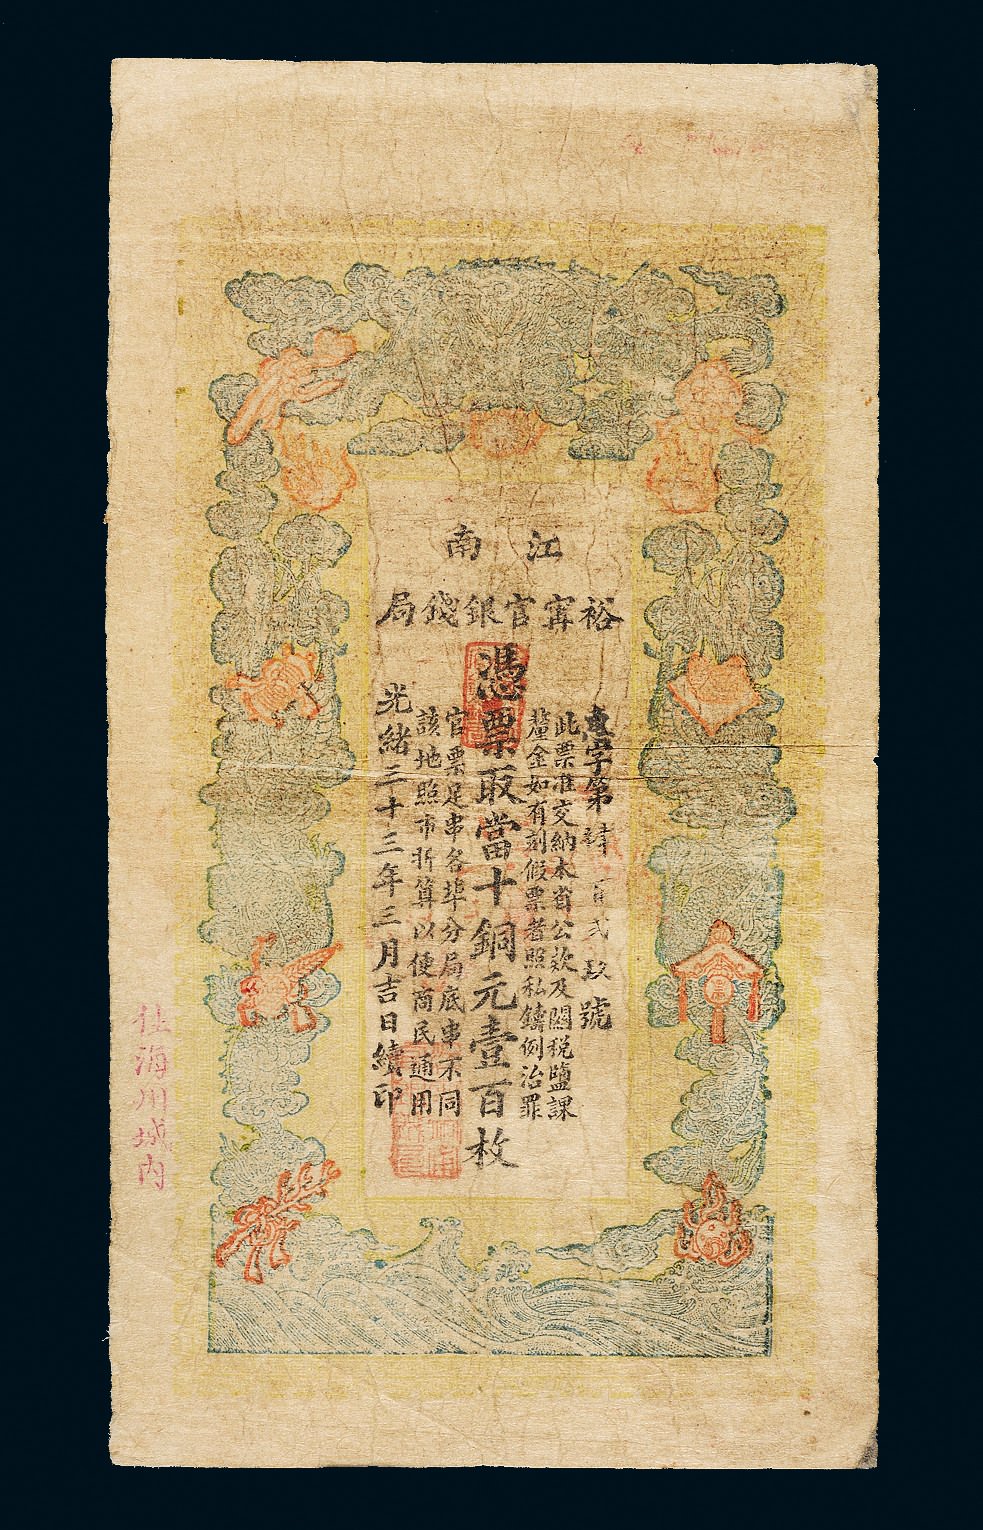 江南
裕寧官銀錢局
字第肆百弍玖號
此票准交納本省公款及關税鹽課
釐金如有刻假票者照私鑄例治罪
憑票取當十銅元壹百枚
官票足串各埠分局底串不同
該地照市折算以便商民通用
光緒三十三年三月吉日續印
海州城内